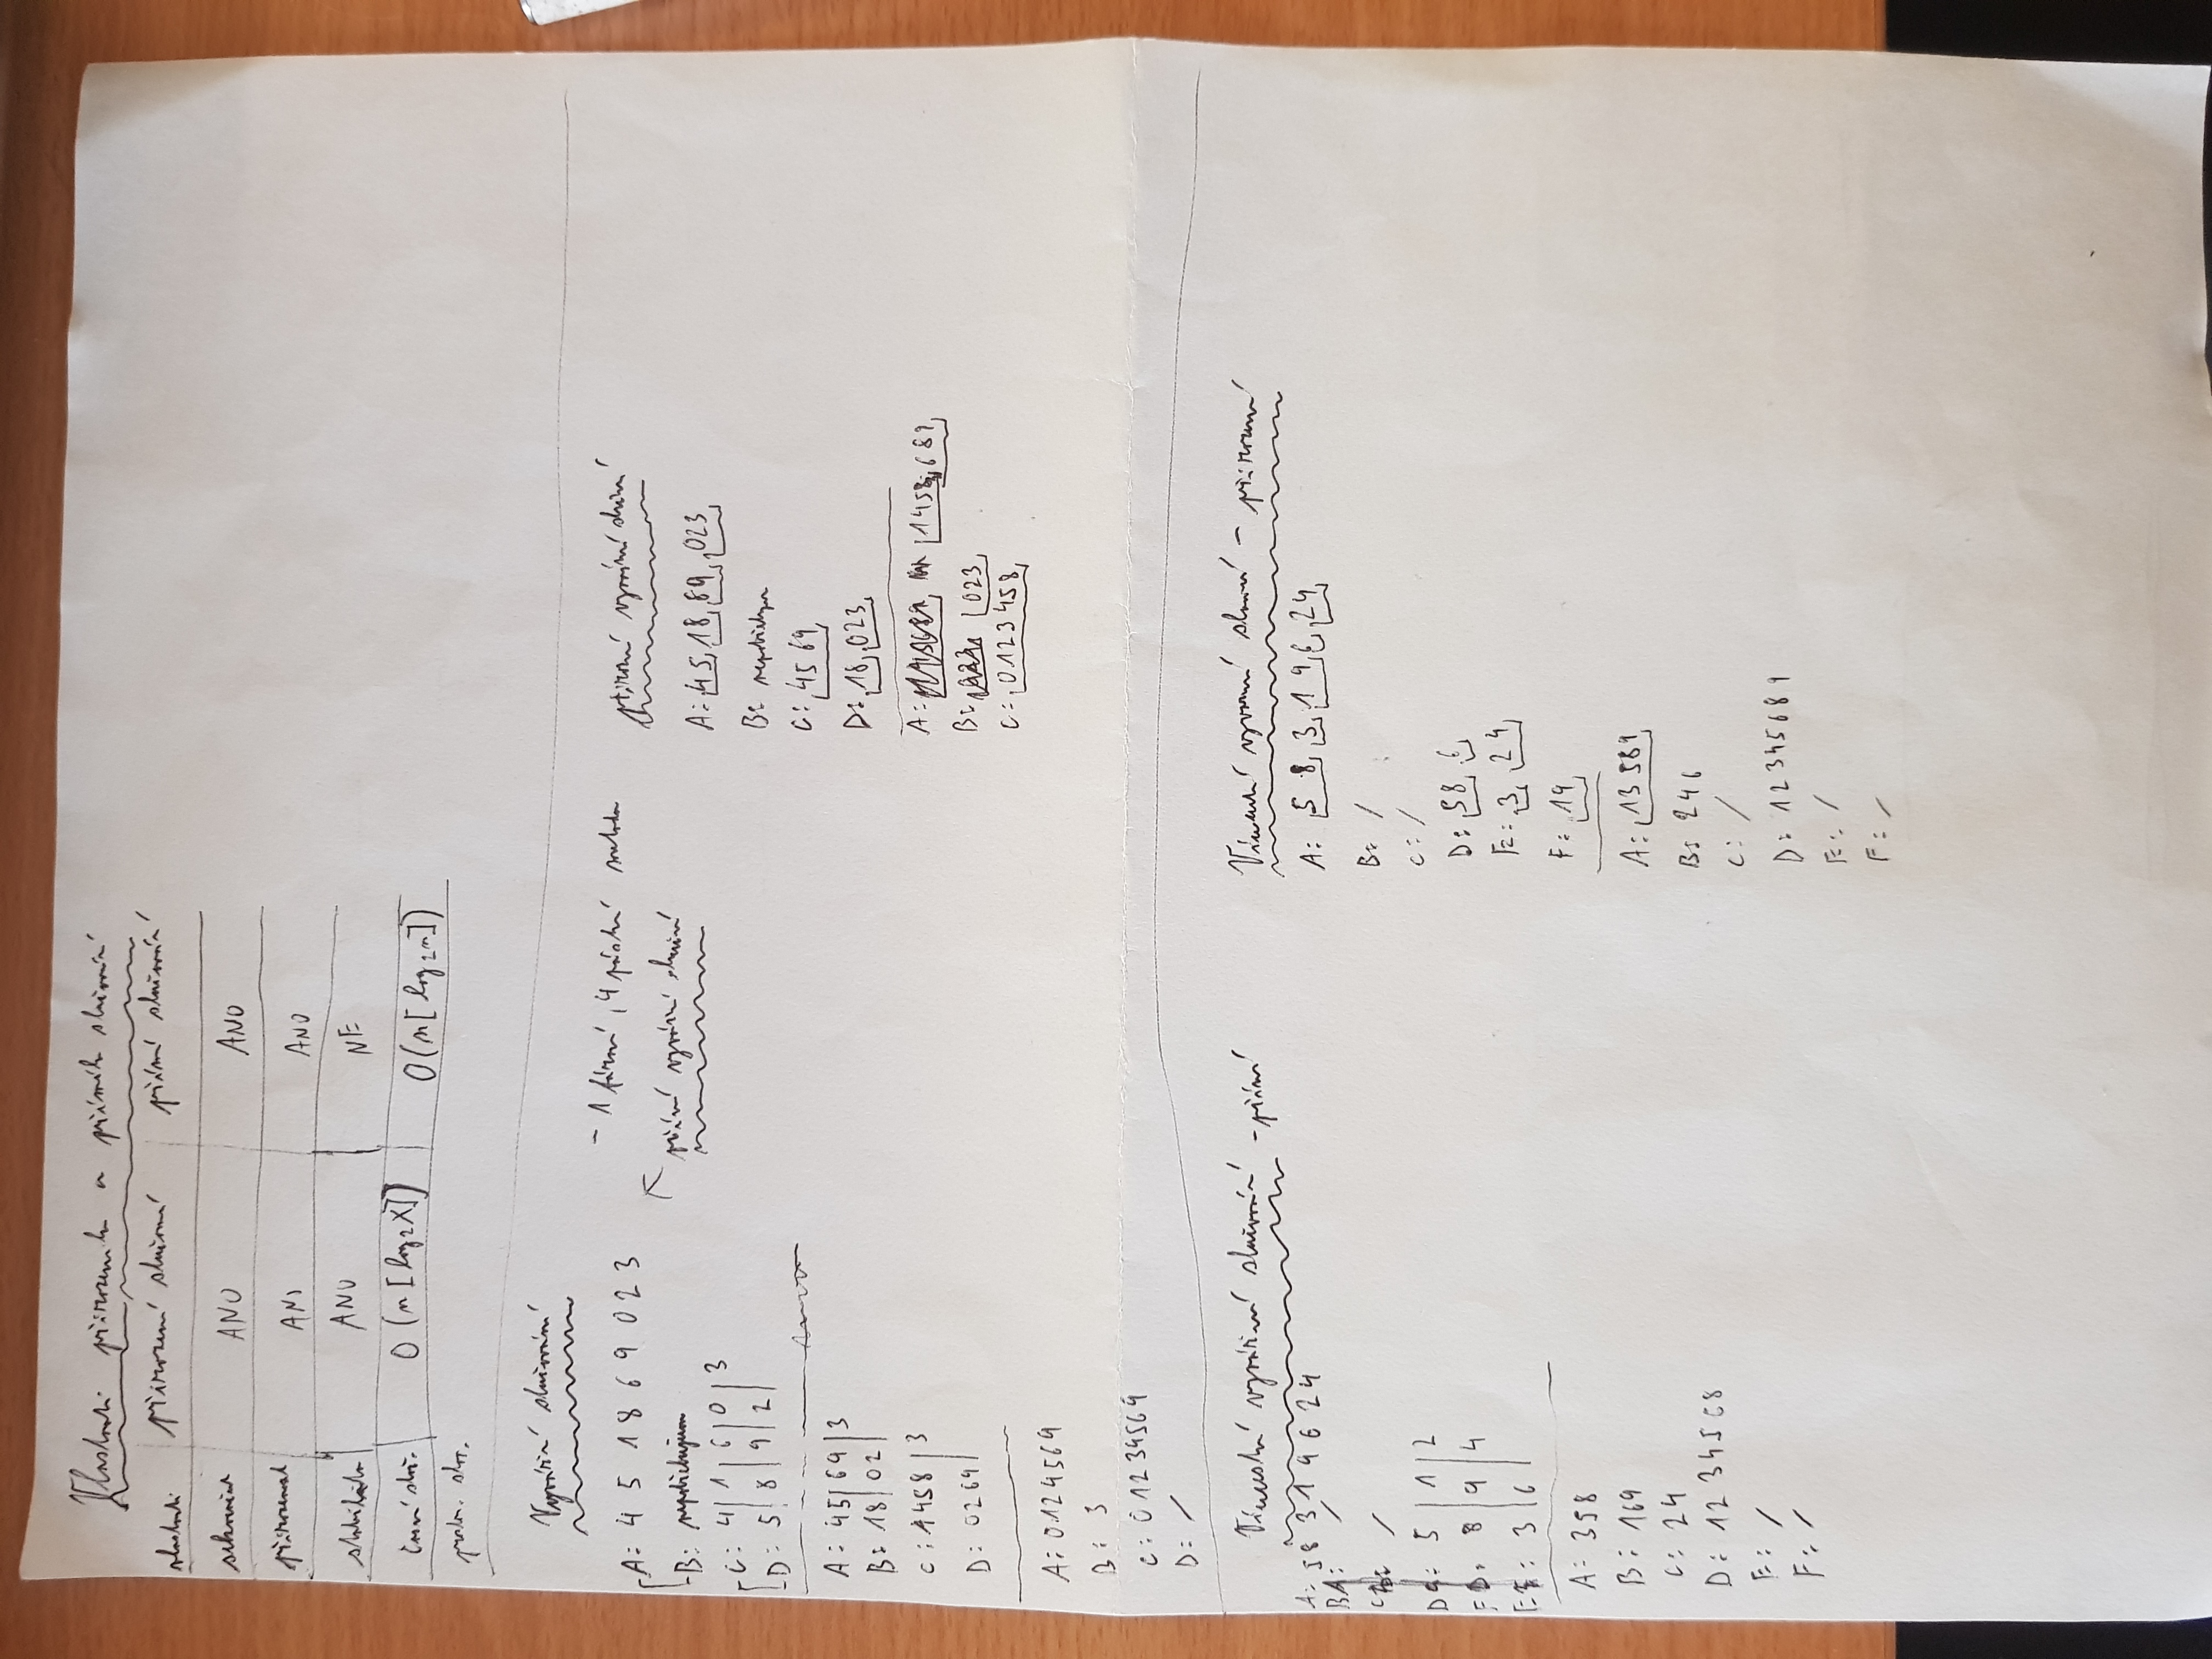 Vlastnosti přirozeného a přímého slučování
vlastnosti přirozené slučování přímé slučování
sekvenčnost ANO ANO
přirozenost ANO ANO
stabilita ANO NE
časová slož. O(n[log2X]) O(n[log2n])
prostor. slož.
Vyvážené slučování
- 1 fázová, 4 pásková metoda
přímé vyvážené slučování
A: 4 5 1 8 6 9 0 2 3
B: nepotřebujeme
C: 4 | 1 | 6 | 0 | 3
D: 5 | 8 | 9 | 2 |
A: 45 | 69 | 3
B: 18 | 02 |
C: 1458 | 3
D: 0269 |
A: 0124569
B: 3
C: 01234569
D: /
přirozené vyvážené slučování
A: 45 18 69 023
B: nepotřebujeme
C: 45 69
D: 18 023
A: 1458 689
B: 023
C: 0123458
Vícecestné vyvážené slučování - přímé
A: 5 8 3 1 9 6 2 4
B: /
C: /
D: 5 | 1 | 2
F: 8 | 9 | 4
E: 3 | 6 |
A: 358
B: 169
C: 24
D: 1234568
E: /
F: /
Vícecestné vyvážené slučování - přirozené
A: 5 8 3 1 9 6 24
B: /
C: /
D: 58 6
E: 3 24
F: 19
A: 13589
B: 246
C: /
D: 12345689
E: /
F: /